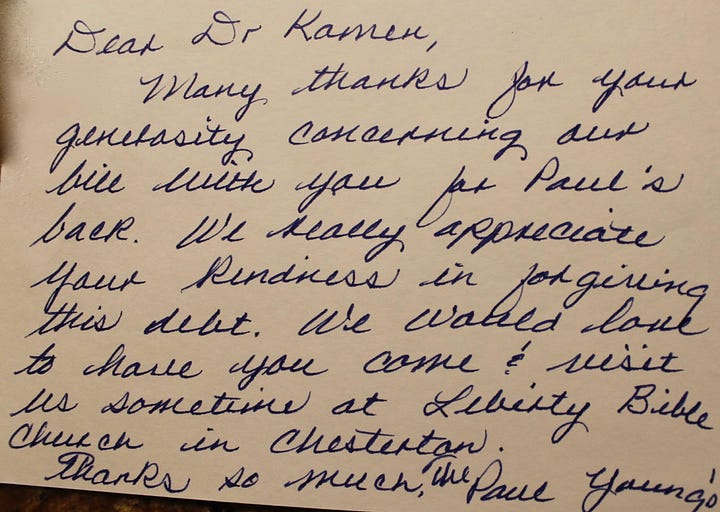 Dear Dr Kamen,
Many thanks for your
generosity concerning our
bill with you for Paul's
back. We really appreciate
your kindness in forgiving
this debt. We would love
to have you come & visit
us sometime at Liberty Bible
Church in Chesterton.
Thanks so much, the Paul Young's